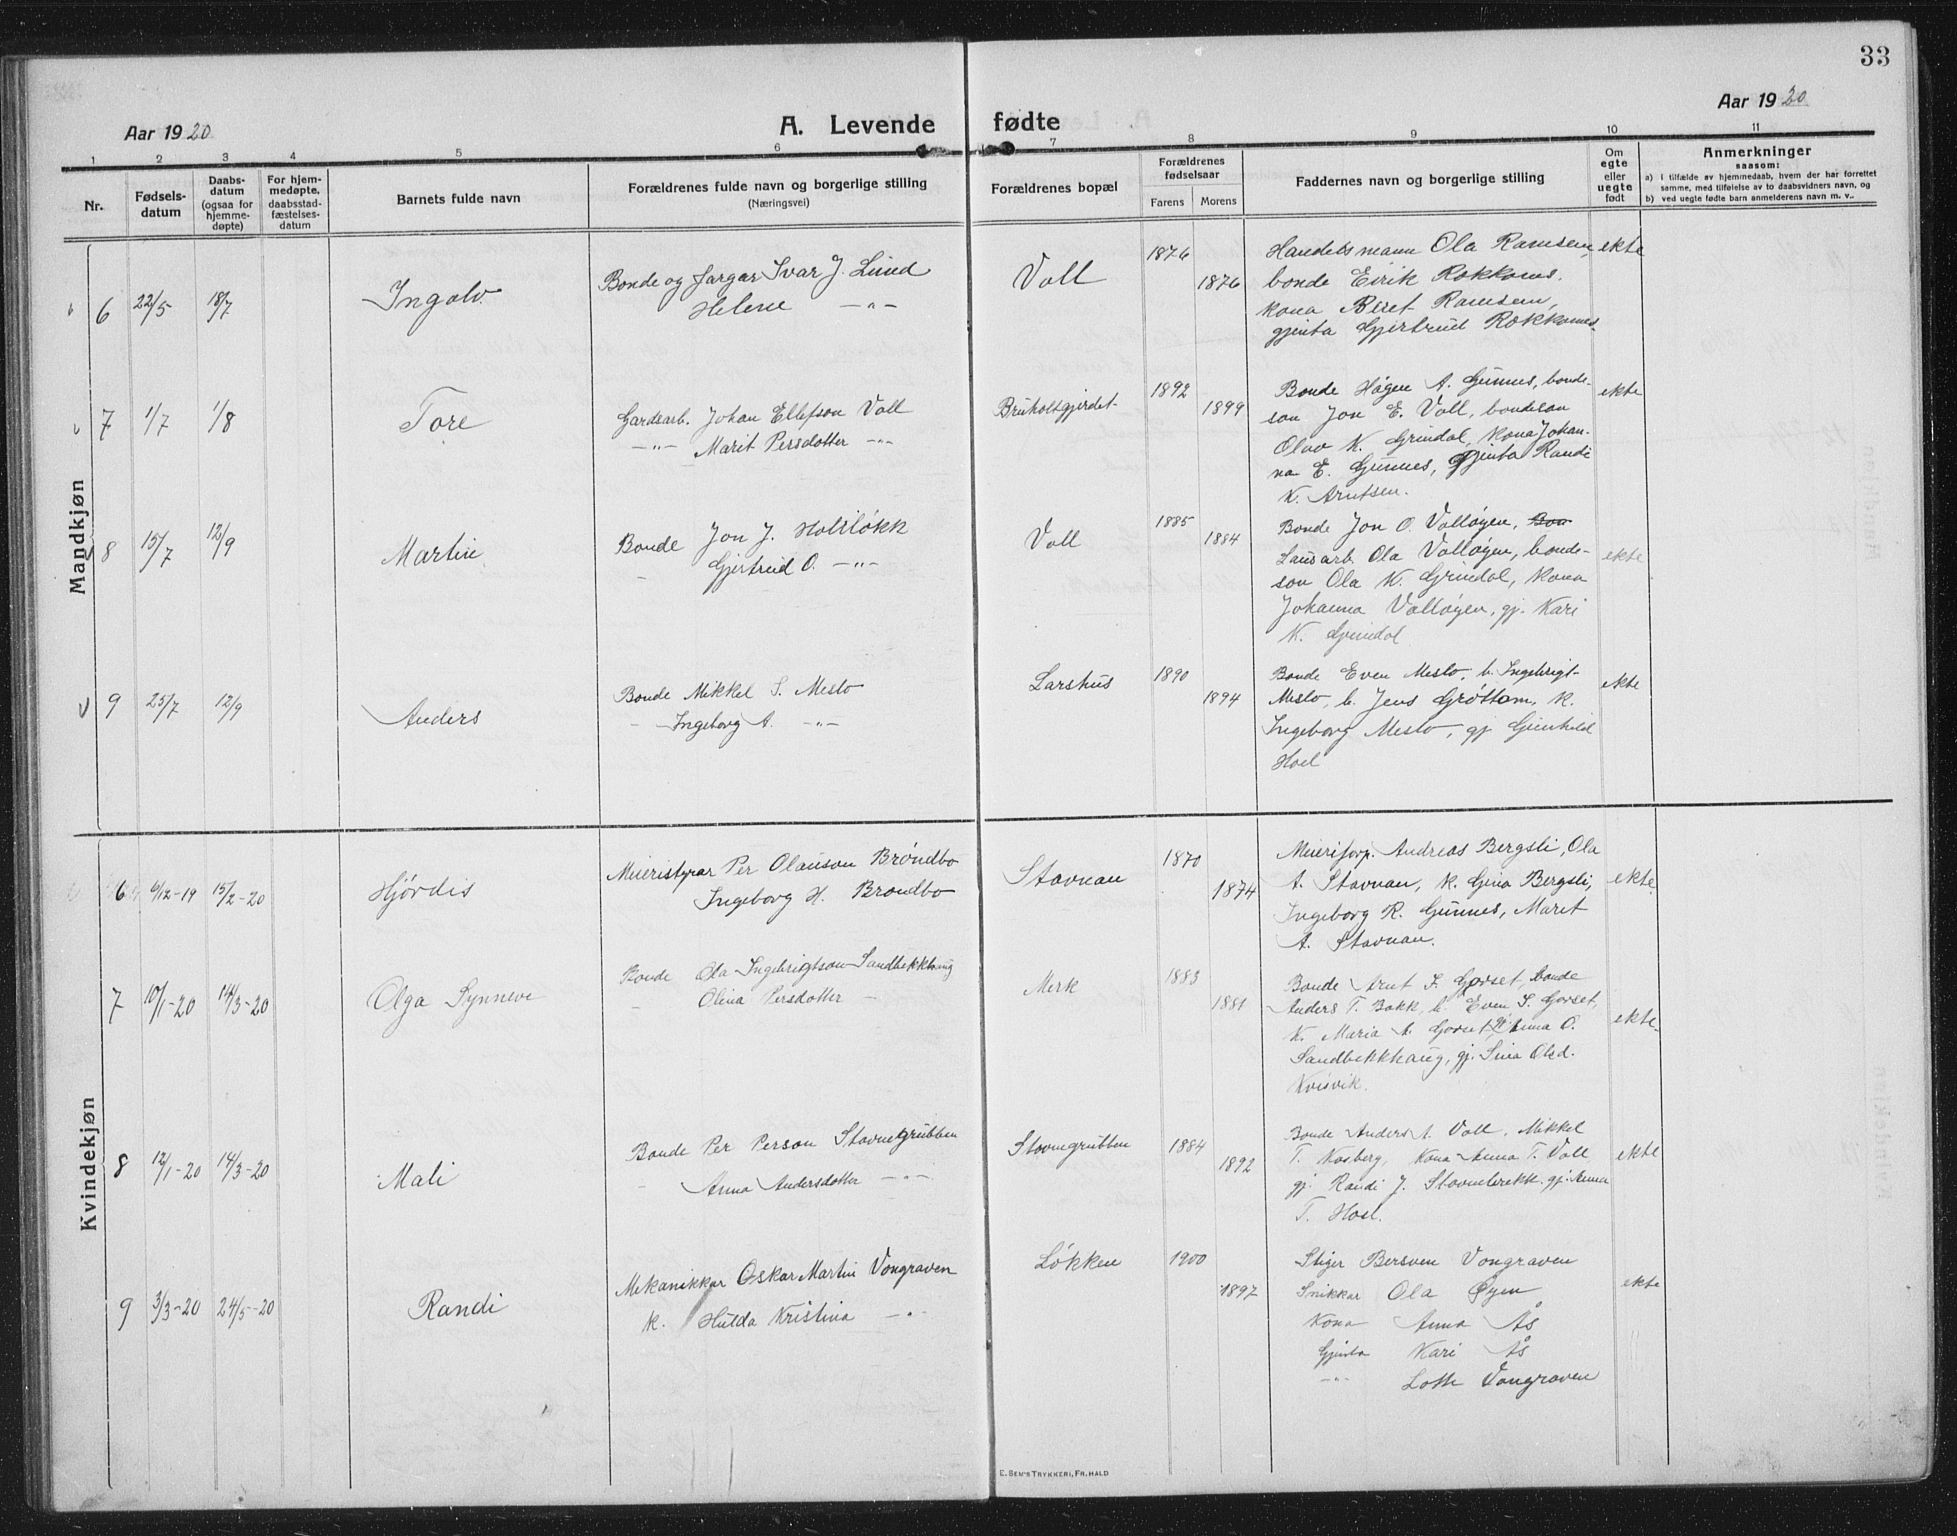 33
Aar 1920
A. Levende fødte
Aar 1920
1 2 3 4 5 6 7 8 9 10 11
Nr.
Fødsels-
datum
Daabs-
datum
(ogsaa for
hjemme-
døpte)
For hjem-
medøpte,
daabsstad-
fæstelses-
datum
Barnets fulde navn
Forældrenes fulde navn og borgerlige stilling
(Næringsvei)
Forældrenes bopæl
Forældrenes
fødselsaar
Farens Morens
Faddernes navn og borgerlige stilling
Om
egte
eller
uegte
født
Anmerkninger
saasom:
a) i tilfælde av hjemmedaab, hvem der har forrettet
samme, med tilføielse av to daabsvidners navn, og
b) ved uegte fødte barn anmelderens navn m. v..
Mandkjøn
6 22/5 18/7 Ingolv
Bonde og fargar Ivar J. Lund
Helene -"-
Voll 1876 1876
Handelsmann Ola Ramsem,
bonde Eirik Rokkones.
kona Beret Ramsem,
gjenta Gjertrud Rokkones.
ekte
7 1/7 1/8 Tore
Gardsarb. Johan Ellefson Voll
-"- Marit Persdotter -"-
Bruholtgjerdet 1892 1899
Bonde Hågen A. Gunnes, bonde-
son Jon E. Voll, bondeson
Olav K. Grindal, kona Johan-
na E. Gunnes, gjenta Randi
K. Arntsen.
ekte
8 15/7 12/9 Martin
Bonde Jon J. Holtløkk
- Gjertrud O. -"-
Voll 1885 1884
Bonde Jon O. Volløyen, Bon
Lausarb. Ola Volløyen, bonde-
son Ola K. Grindal, kona
Johanna Volløyen, gj. Kari
K. Grindal
ekte
9 25/7 12/9 Anders
Bonde Mikkel S. Meslo
- Ingeborg A. -"-
Larshus 1890 1894
Bonde Even Meslo, b. Ingebrigt
Meslo, b. Jens Grøttem, k.
Ingeborg Meslo, gj Gunhild
Hoel
ekte
Kvindekjøn
6 6/12-19 15/2-20 Hjørdis
Meieristyrar Per Olauson Brøndbo
Ingeborg H. Brøndbo
Stavnan 1870 1874
Meieriforp. Andreas Bergsli, Ola
A. Stavnan, k. Gina Bergsli,
Ingeborg K. Gunnes, Marit
A. Stavnan.
ekte
7 10/1-20 14/3-20 Olga Synneve
Bonde Ola Ingebrigtson Sandbekkhaug
- Olina Persdotter -
Merk 1883 1881
Bonde Arnt I. Gorset, bonde
Anders T. Bakk, b. Even I. Gorset,
K. Maria A. Gorset, gj. Anna O.
Sandbekkhaug, gj. Sina Olsd.
Kvisvik.
ekte
8 12/1-20 14/3-20 Mali
Bonde Per Person Stavnegrubben
- Anna Andersdotter -"-
Stavnegrubben 1884 1892
Bonde Anders A. Voll, Mikkel
T. Kosberg, Kona Anna T. Voll
gj. Randi J. Stavnebrekk. gj. Anna
T. Hoel.
ekte
9 3/3-20 24/5-20 Randi
Mekanikkar Oskar Martin Vongraven
k. Hulda Kristina -"-
Løkken 1900 1897
Stiger Bersven Vongraven
Snikkar Ola Øyen
Kona Anna Ås
Gjenta Kari Ås
-"- Lotte Vongraven
ekte
E. Sem's Trykkeri, Fr.hald